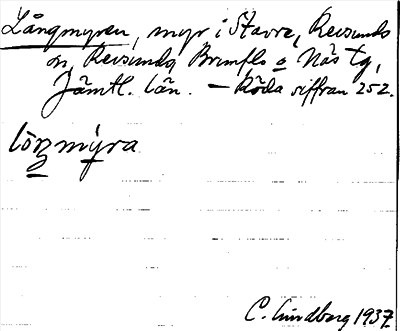 Långmyren, myr i Stavre, Revsunds
sn, Revsunds, Brunflo o Näs tg,
Jämtl. län. – Röda siffran 252.
löŋmýra
C. Lindberg 1937.